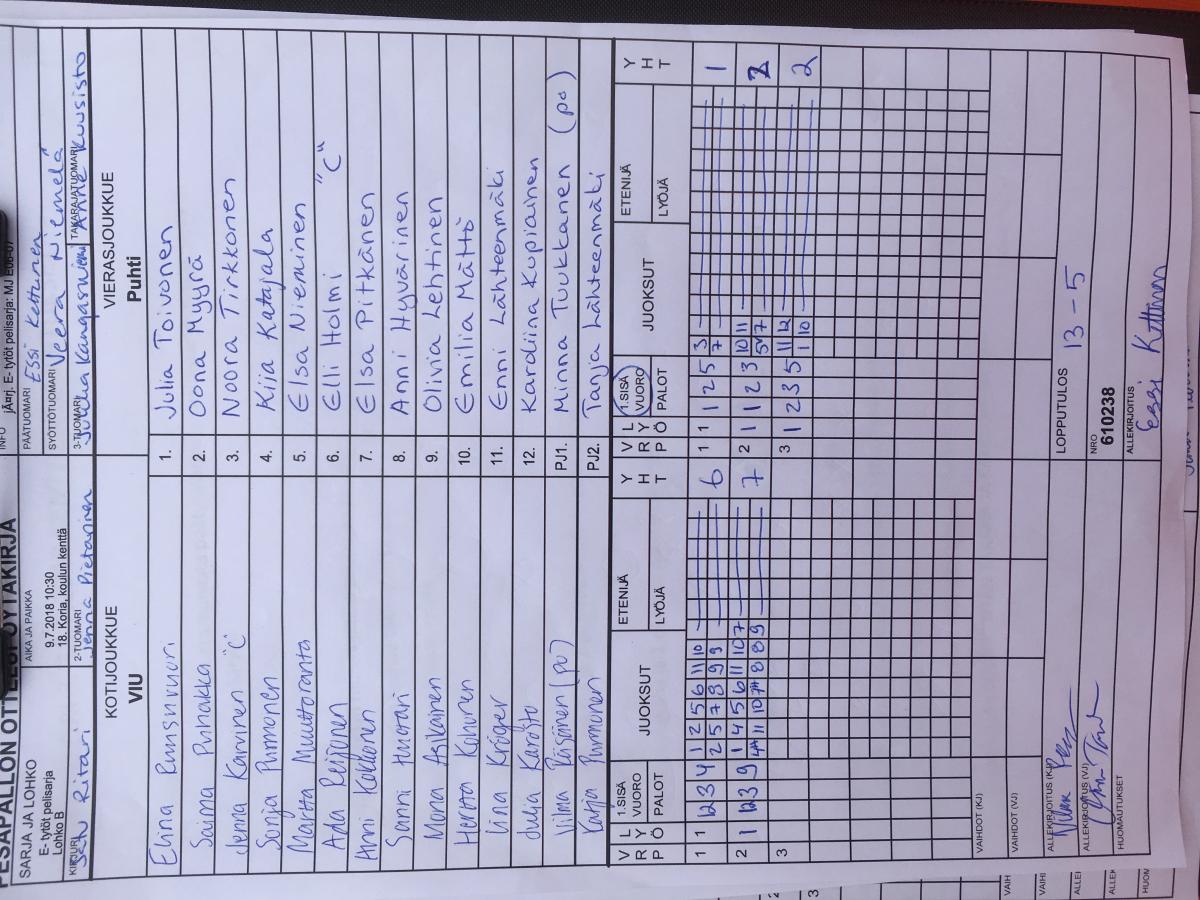 PESÄPALLON OTTELUPÖYTÄKIRJA
SARJA JA LOHKO
E- tytöt pelisarja
Lohko B
AIKA JA PAIKKA
9.7.2018 10:30
18. Koria, koulun kenttä
INFO jÄrrj. E- tytöt pelisarja: MJ E06-07
PÄÄTUOMARI Essi Kettunen
SYÖTTÖTUOMARI Veera Niemelä
KIRJURI Satu Ritari
2-TUOMARI Jenna Pietarinen
3-TUOMARI Jukka Kangasniemi
TAKARAJATUOMARI Anne Kuusisto
KOTIJOUKKUE
VIU
VIERASJOUKKUE
Puhti
Elina 1. Julia Toivonen
Saima 2. Oona Myyrä
Jenna Karvinen "C" 3. Noora Tirkkonen
Sonja Purmonen 4. Kija Katajala
Martta 5. Elsa Nieminen
Ada Reijonen 6. Elli Holmi "C"
Anni Kokkonen 7. Elsa Pitkänen
Sanni 8. Anni Hyvärinen
Mona Asikainen 9. Olivia Lehtinen
Hertta 10. Emilia Mättö
Kröger 11. Enni Lähteenmäki
Julia 12. Kardiina Kopiainen
Vilma Räisänen (po) PJ1. Minna Tuukkanen (po)
Katja Purmonen PJ2. Tanja Lähteenmäki
V R P L Y Ö 1.SISÄ VUORO PALOT JUOKSUT ETENIJÄ LYÖJÄ Y H T
V R P L Y Ö 1.SISÄ VUORO PALOT JUOKSUT ETENIJÄ LYÖJÄ Y H T
1 1 12 3 4 1 2 5 6 11 10 6 1 1 1 2 5 3 1
2 5 7 8 9 9 7
2 1 12 3 9 1 4 5 6 11 10 7 7 2 1 1 2 3 10 11 2
3 3 1 2 3 5 11 12 2
1 10
VAIHDOT (KJ)
VAIHDOT (VJ)
ALLEKIRJOITUS (KJ)
LOPPUTULOS 13 - 5
ALLEKIRJOITUS (VJ)
NRO
610238
HUOMAUTUKSET
ALLEKIRJOITUS
Essi Kettunen